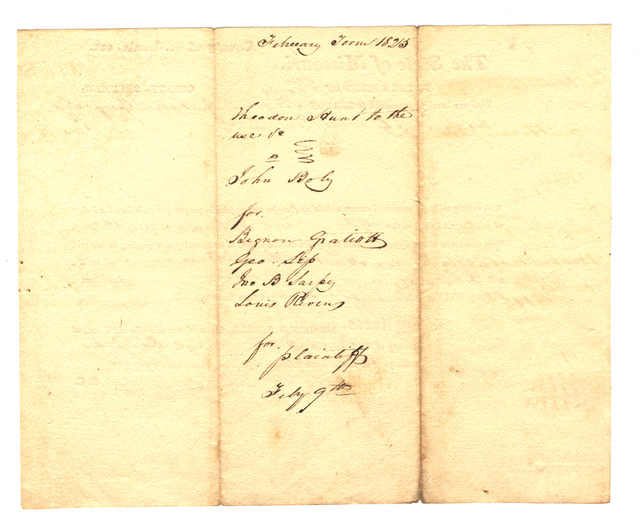 February Term 1825
Theodon Hunt to the
use &c
vs
John Boly
for
Bignon Gratiott
Geo. Sip
Jno B Sarpy
Louis Rivens
for
plaintiff
Feby 9th